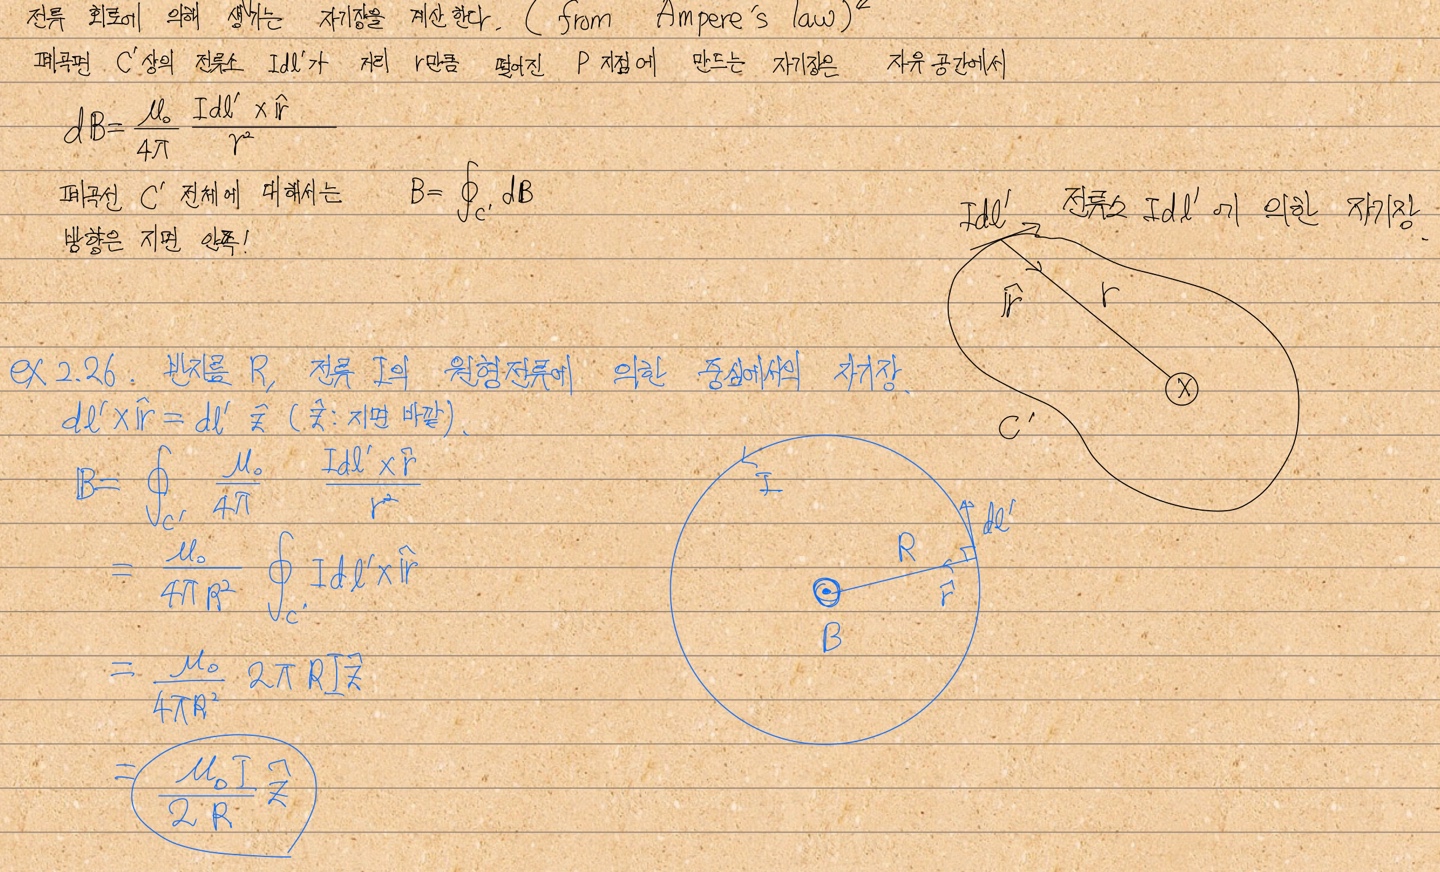 전류 회로에 의해 생기는 자기장을 계산한다. (from Ampere's law)
폐곡면 C'상의 전류소 Idl'가 거리 r만큼 떨어진 P 지점에 만드는 자기장은 자유 공간에서
dB = μ₀/4π Idl' × r̂ / r²
폐곡선 C' 전체에 대해서는 B = ∮_C' dB
방향은 지면 안쪽!
Idl' 전류소 Idl'에 의한 자기장.
r̂ r
X
C'
ex 2.26. 반지름 R, 전류 I의 원형전류에 의한 중심에서의 자기장.
dl' × r̂ = dl' ẑ (ẑ: 지면 바깥).
B = ∮_C' μ₀/4π Idl' × r̂ / r²
= μ₀/4πR² ∮_C' Idl' × r̂
= μ₀/4πR² 2πRIẑ
= μ₀I/2R ẑ
I
dl'
R
r̂
B